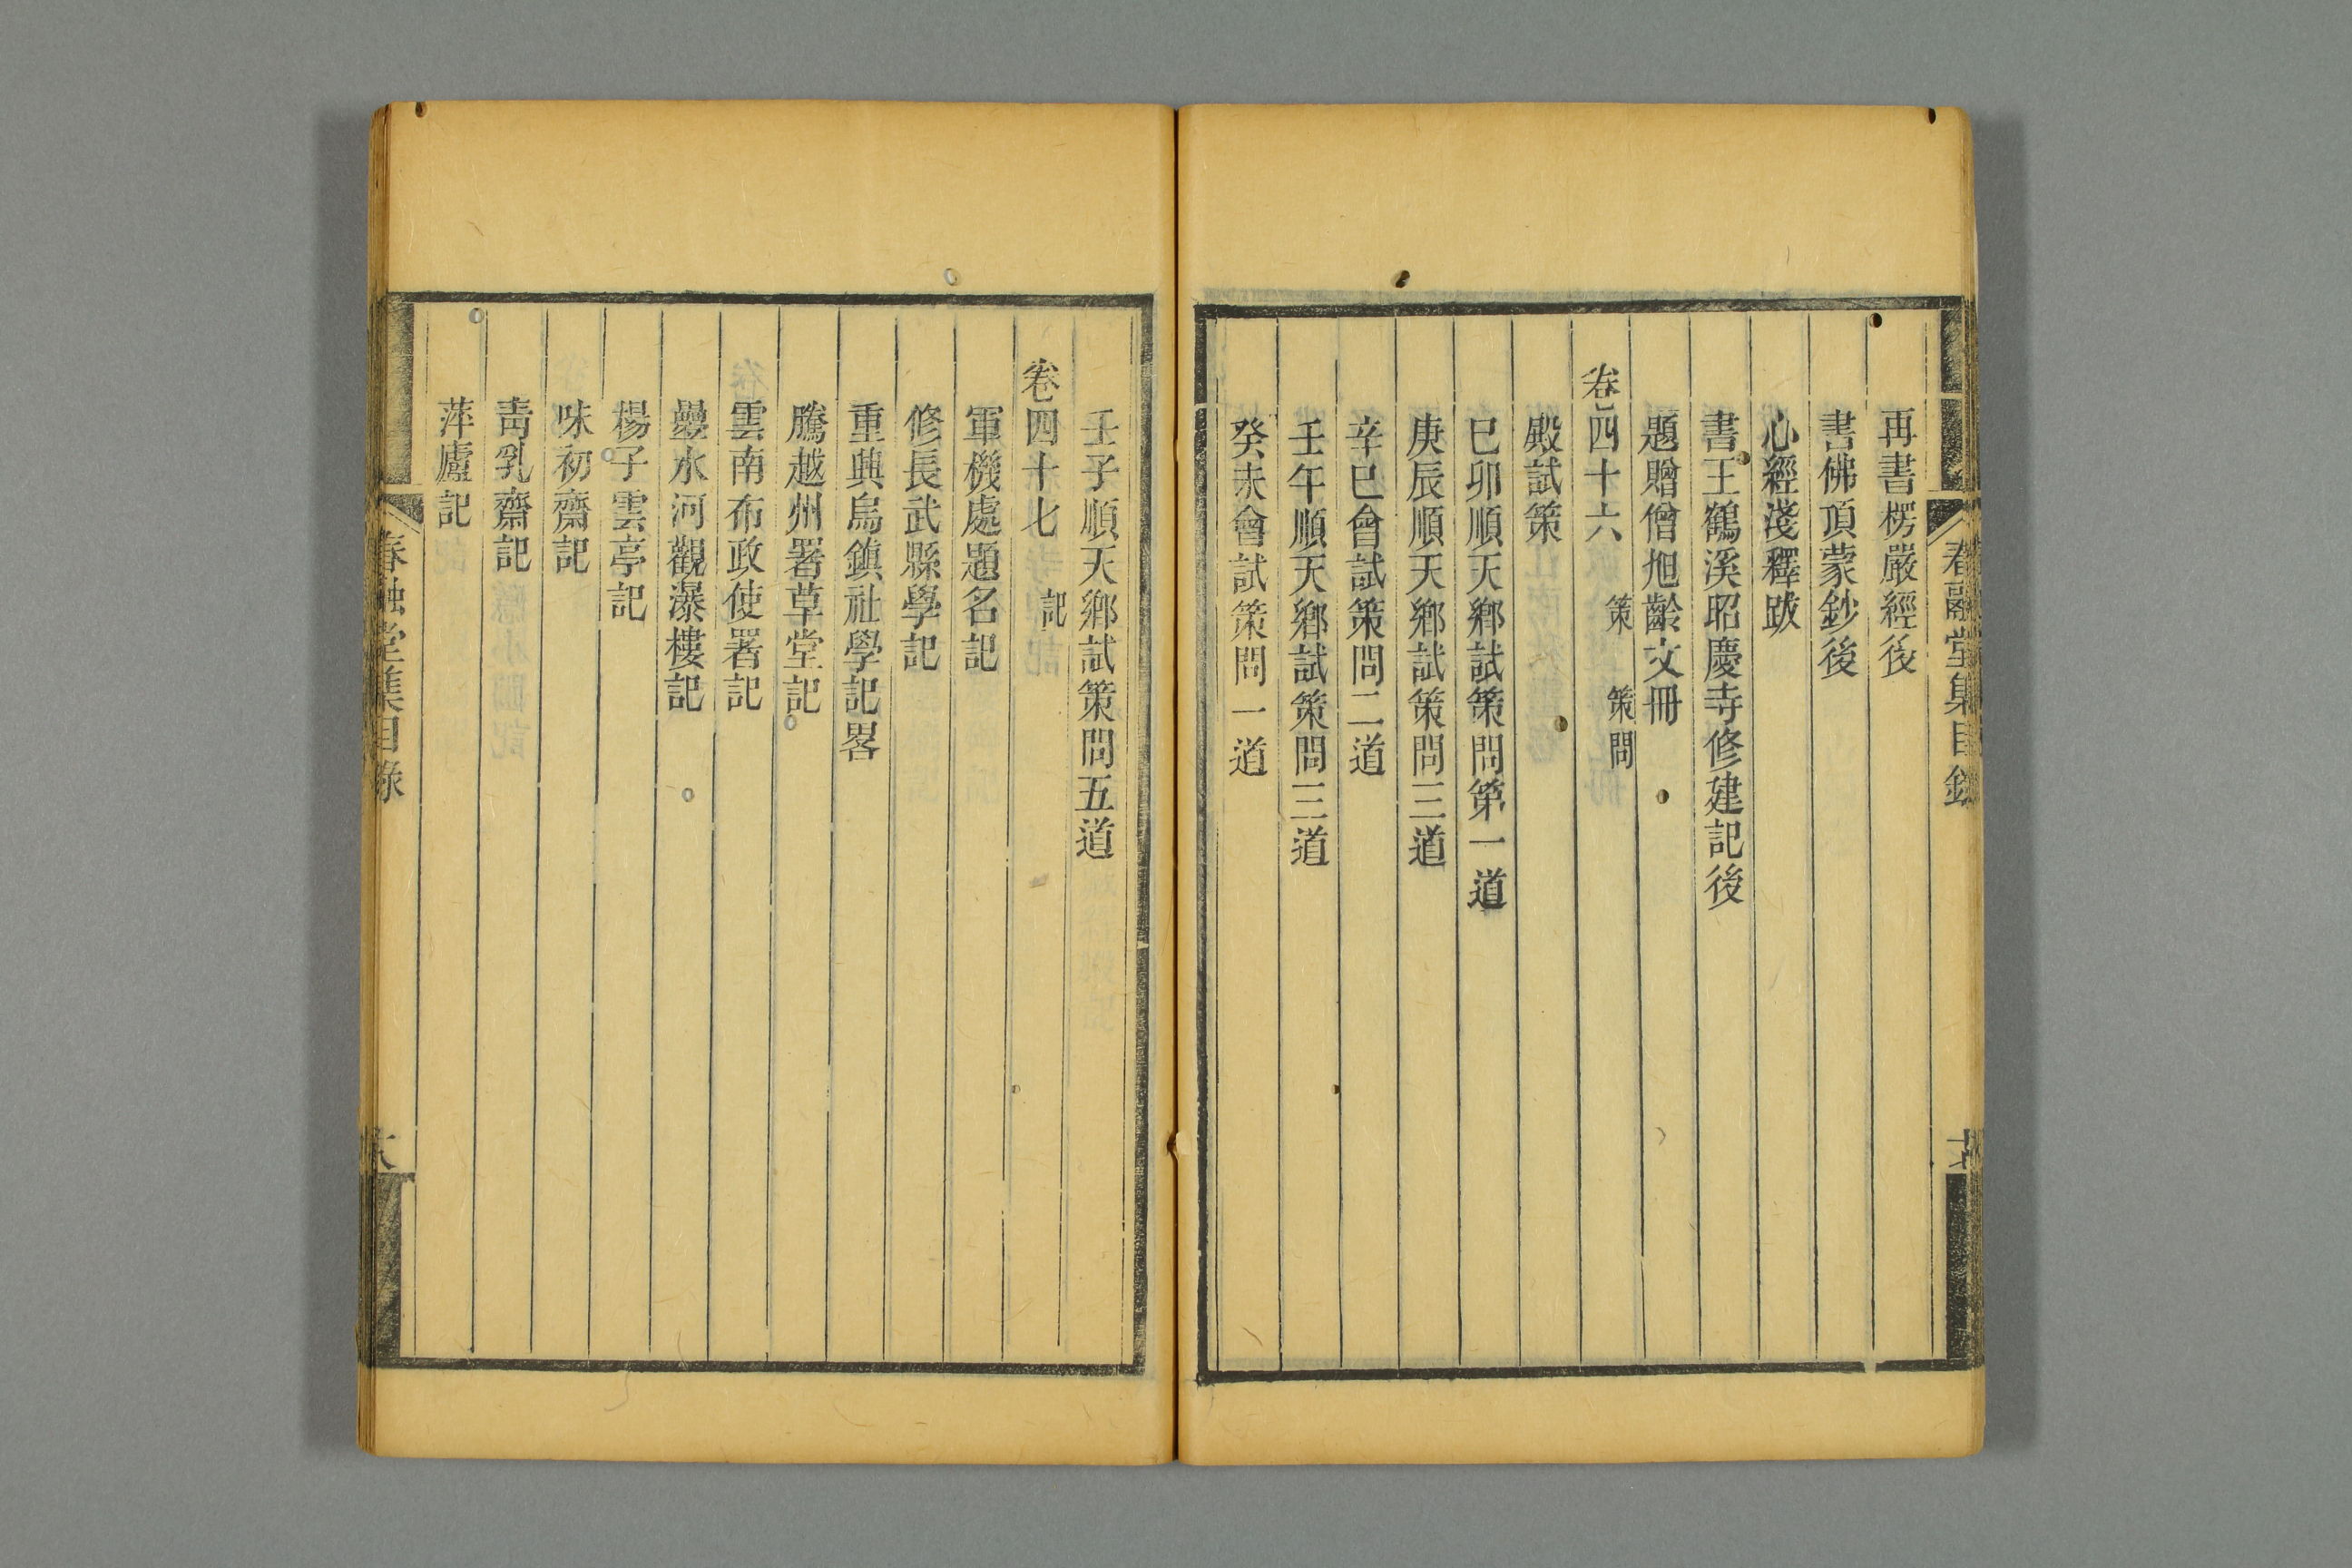 春融堂集目錄
再書楞嚴經後
書佛頂蒙鈔後
心經淺釋跋
書王鶴溪昭慶寺修建記後
題贈僧旭齡文冊
卷四十六 策 策問
殿試策
巳卯順天鄉試策問第一道
庚辰順天鄉試策問三道
辛巳會試策問二道
壬午順天鄉試策問三道
癸未會試策問一道
壬子順天鄉試策問五道
卷四十七 記
軍機處題名記
修長武縣學記
重興烏鎮社學記畧
騰越州署草堂記
雲南布政使署記
疊水河觀瀑樓記
楊子雲亭記
味初齋記
靑乳齋記
萍廬記
春融堂集目錄